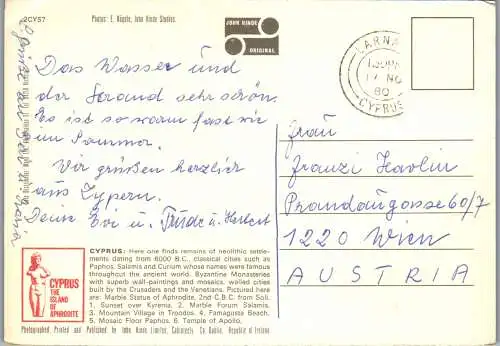 2CY57
Photos: E. Nägele, John Hinde Studios.
JOHN HINDE
ORIGINAL
LARNA
17 NO
80
CYPRUS
Das Wasser und
der Strand sehr schön.
Es ist so warm fast wie
im Sommer.
Wir grüßen herzlich
aus Zypern.
Deine Evi u. Trude u. Herbert
Frau
Franzi Havlin
Prandaugasse 60/7
1220 Wien
AUSTRIA
CYPRUS
THE
ISLAND
OF
APHRODITE
CYPRUS: Here one finds remains of neolithic settle-
ments dating from 6000 B.C., classical cities such as
Paphos, Salamis and Curium whose names were famous
throughout the ancient world. Byzantine Monasteries
with superb wall-paintings and mosaics, walled cities
built by the Crusaders and the Venetians. Pictured here
are: Marble Statue of Aphrodite, 2nd C.B.C. from Soli.
1, Sunset over Kyrenia. 2, Marble Forum Salamis.
3, Mountain Village in Troodos. 4, Famagusta Beach.
5, Mosaic Floor Paphos. 6, Temple of Apollo.
Photographed Printed and Published by John Hinde Limited, Cabinteely, Co. Dublin, Republic of Ireland